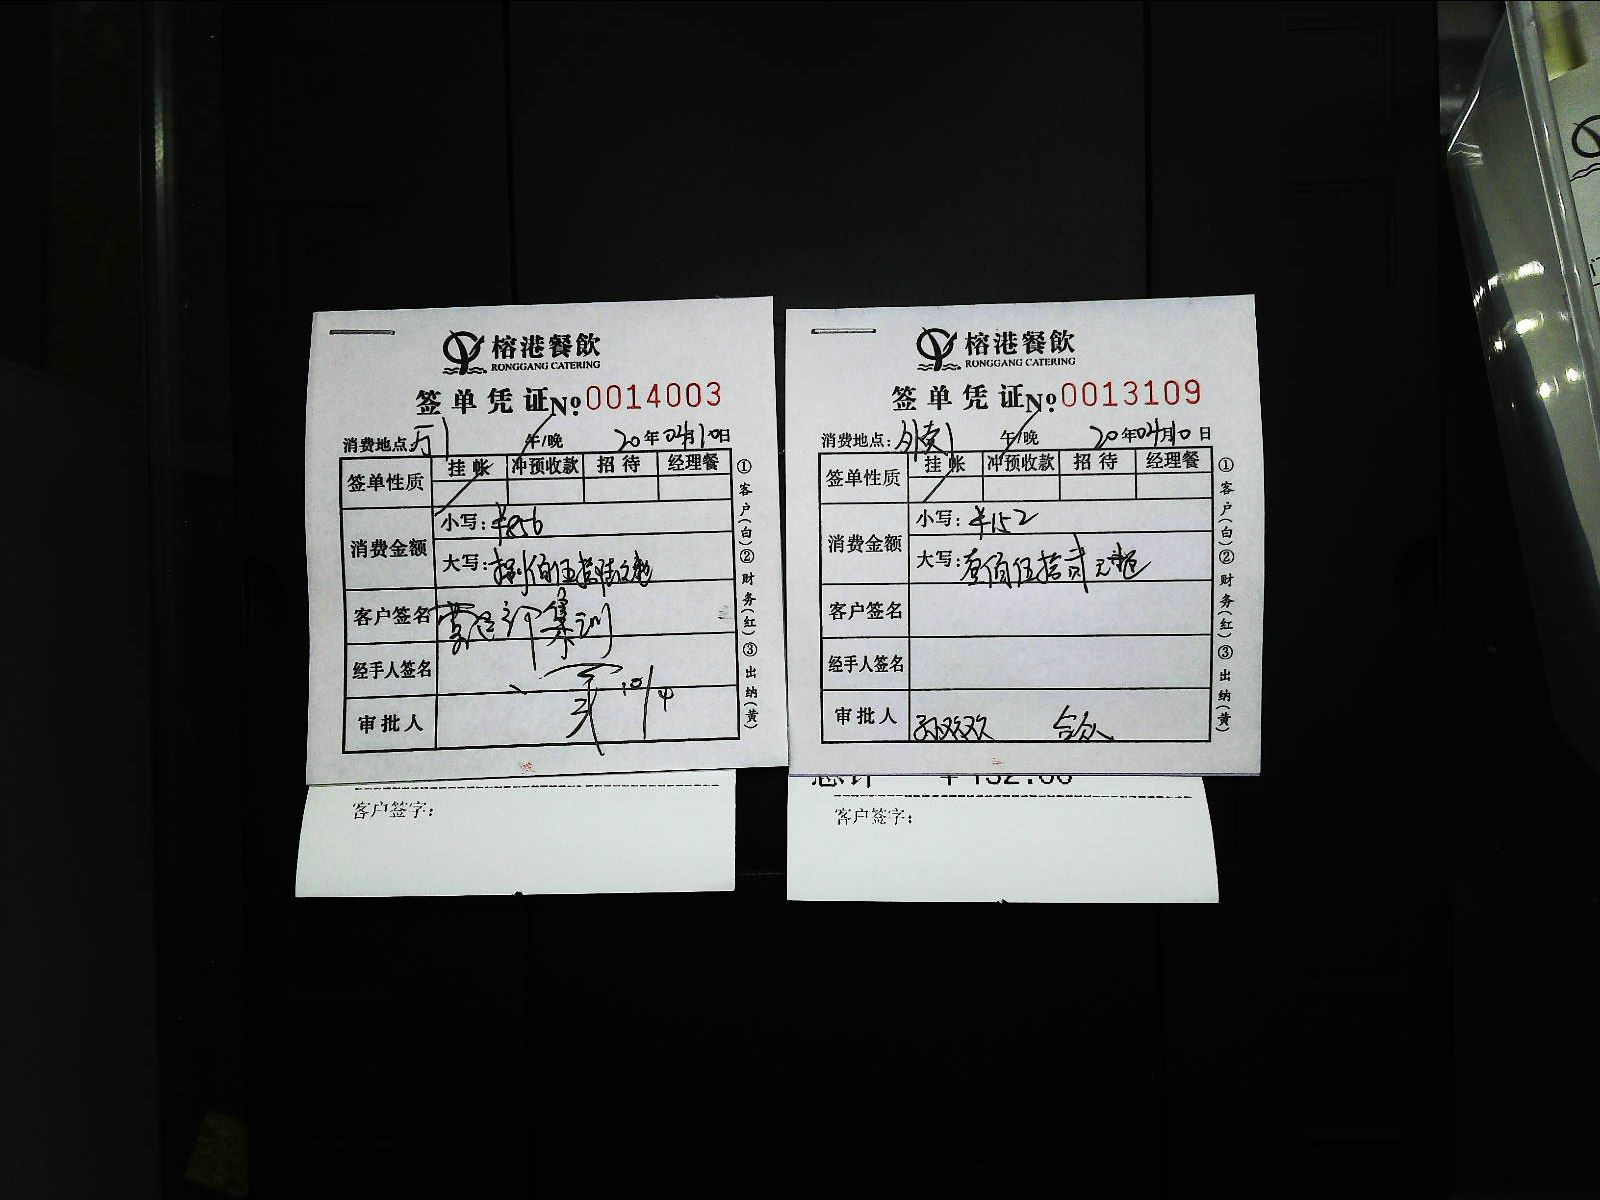 榕港餐飲
RONGGANG CATERING
签单凭证 №0014003
消费地点: 午/晚 20年04月10日
签单性质 挂帐 冲预收款 招待 经理餐
消费金额 小写:¥856
大写:捌佰伍拾陆元整
客户签名 集训
经手人签名
审批人 10/4
①客户(白)②财务(红)③出纳(黄)
客户签字:
榕港餐飲
RONGGANG CATERING
签单凭证 №0013109
消费地点:外卖1 午/晚 20年04月10日
签单性质 挂帐 冲预收款 招待 经理餐
消费金额 小写:¥152
大写:壹佰伍拾贰元整
客户签名
经手人签名
审批人 孙双双 合众
①客户(白)②财务(红)③出纳(黄)
总计 ¥152.00
客户签字: